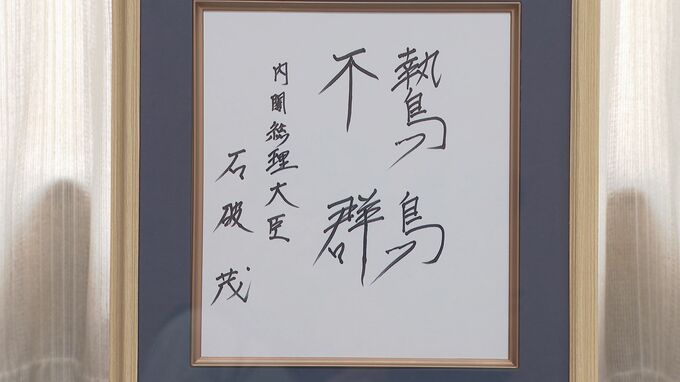 鷙鳥
不群
内閣総理大臣
石破茂